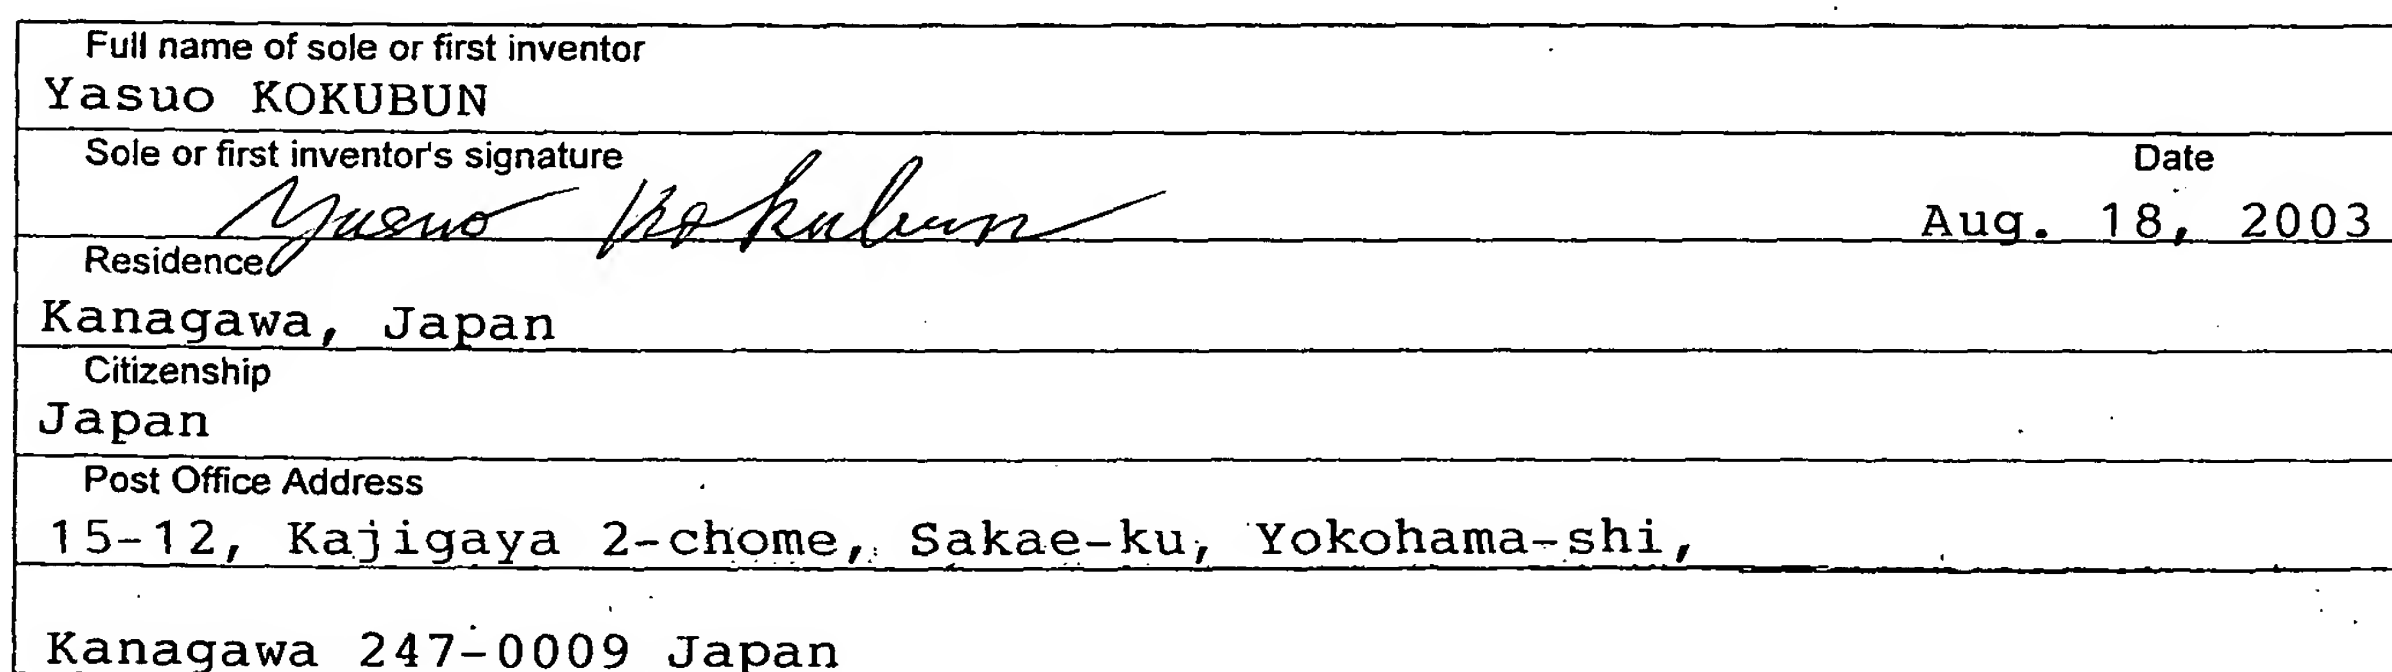 Full name of sole or first inventor
Yasuo KOKUBUN
Sole or first inventor's signature
Date
Yasuo Kokubun
Aug. 18, 2003
Residence
Kanagawa, Japan
Citizenship
Japan
Post Office Address
15-12, Kajigaya 2-chome, Sakae-ku, Yokohama-shi,
Kanagawa 247-0009 Japan